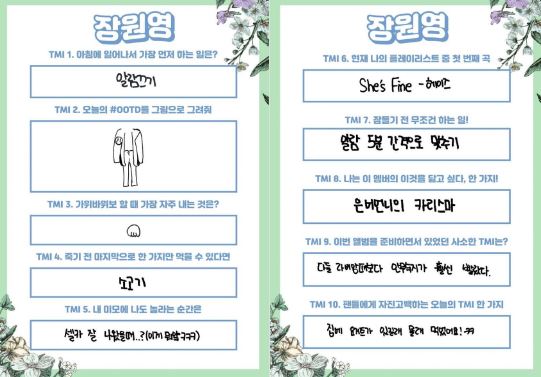 장원영
TMI 1. 아침에 일어나서 가장 먼저 하는 일은?
알람끄기
TMI 2. 오늘의 #OOTD를 그림으로 그려줘
TMI 3. 가위바위보 할 때 가장 자주 내는 것은?
TMI 4. 죽기 전 마지막으로 한 가지만 먹을 수 있다면
소고기
TMI 5. 내 이모에 나도 놀라는 순간은
셀카 잘 나왔을때..?(이게 뭐람ㅋㅋㅋ)
장원영
TMI 6. 현재 나의 플레이리스트 중 첫 번째 곡
She's Fine - 헤이즈
TMI 7. 잠들기 전 무조건 하는 일!
알람 5분 간격으로 맞추기
TMI 8. 나는 이 멤버의 이것을 닮고 싶다, 한 가지!
은비언니의 카리스마
TMI 9. 이번 앨범을 준비하면서 있었던 사소한 TMI는?
다들 라비앙때보다 안무숙지가 훨씬 빨랐다.
TMI 10. 팬들에게 자진고백하는 오늘의 TMI 한 가지
집에 요거트가 있길래 몰래 먹었어요!